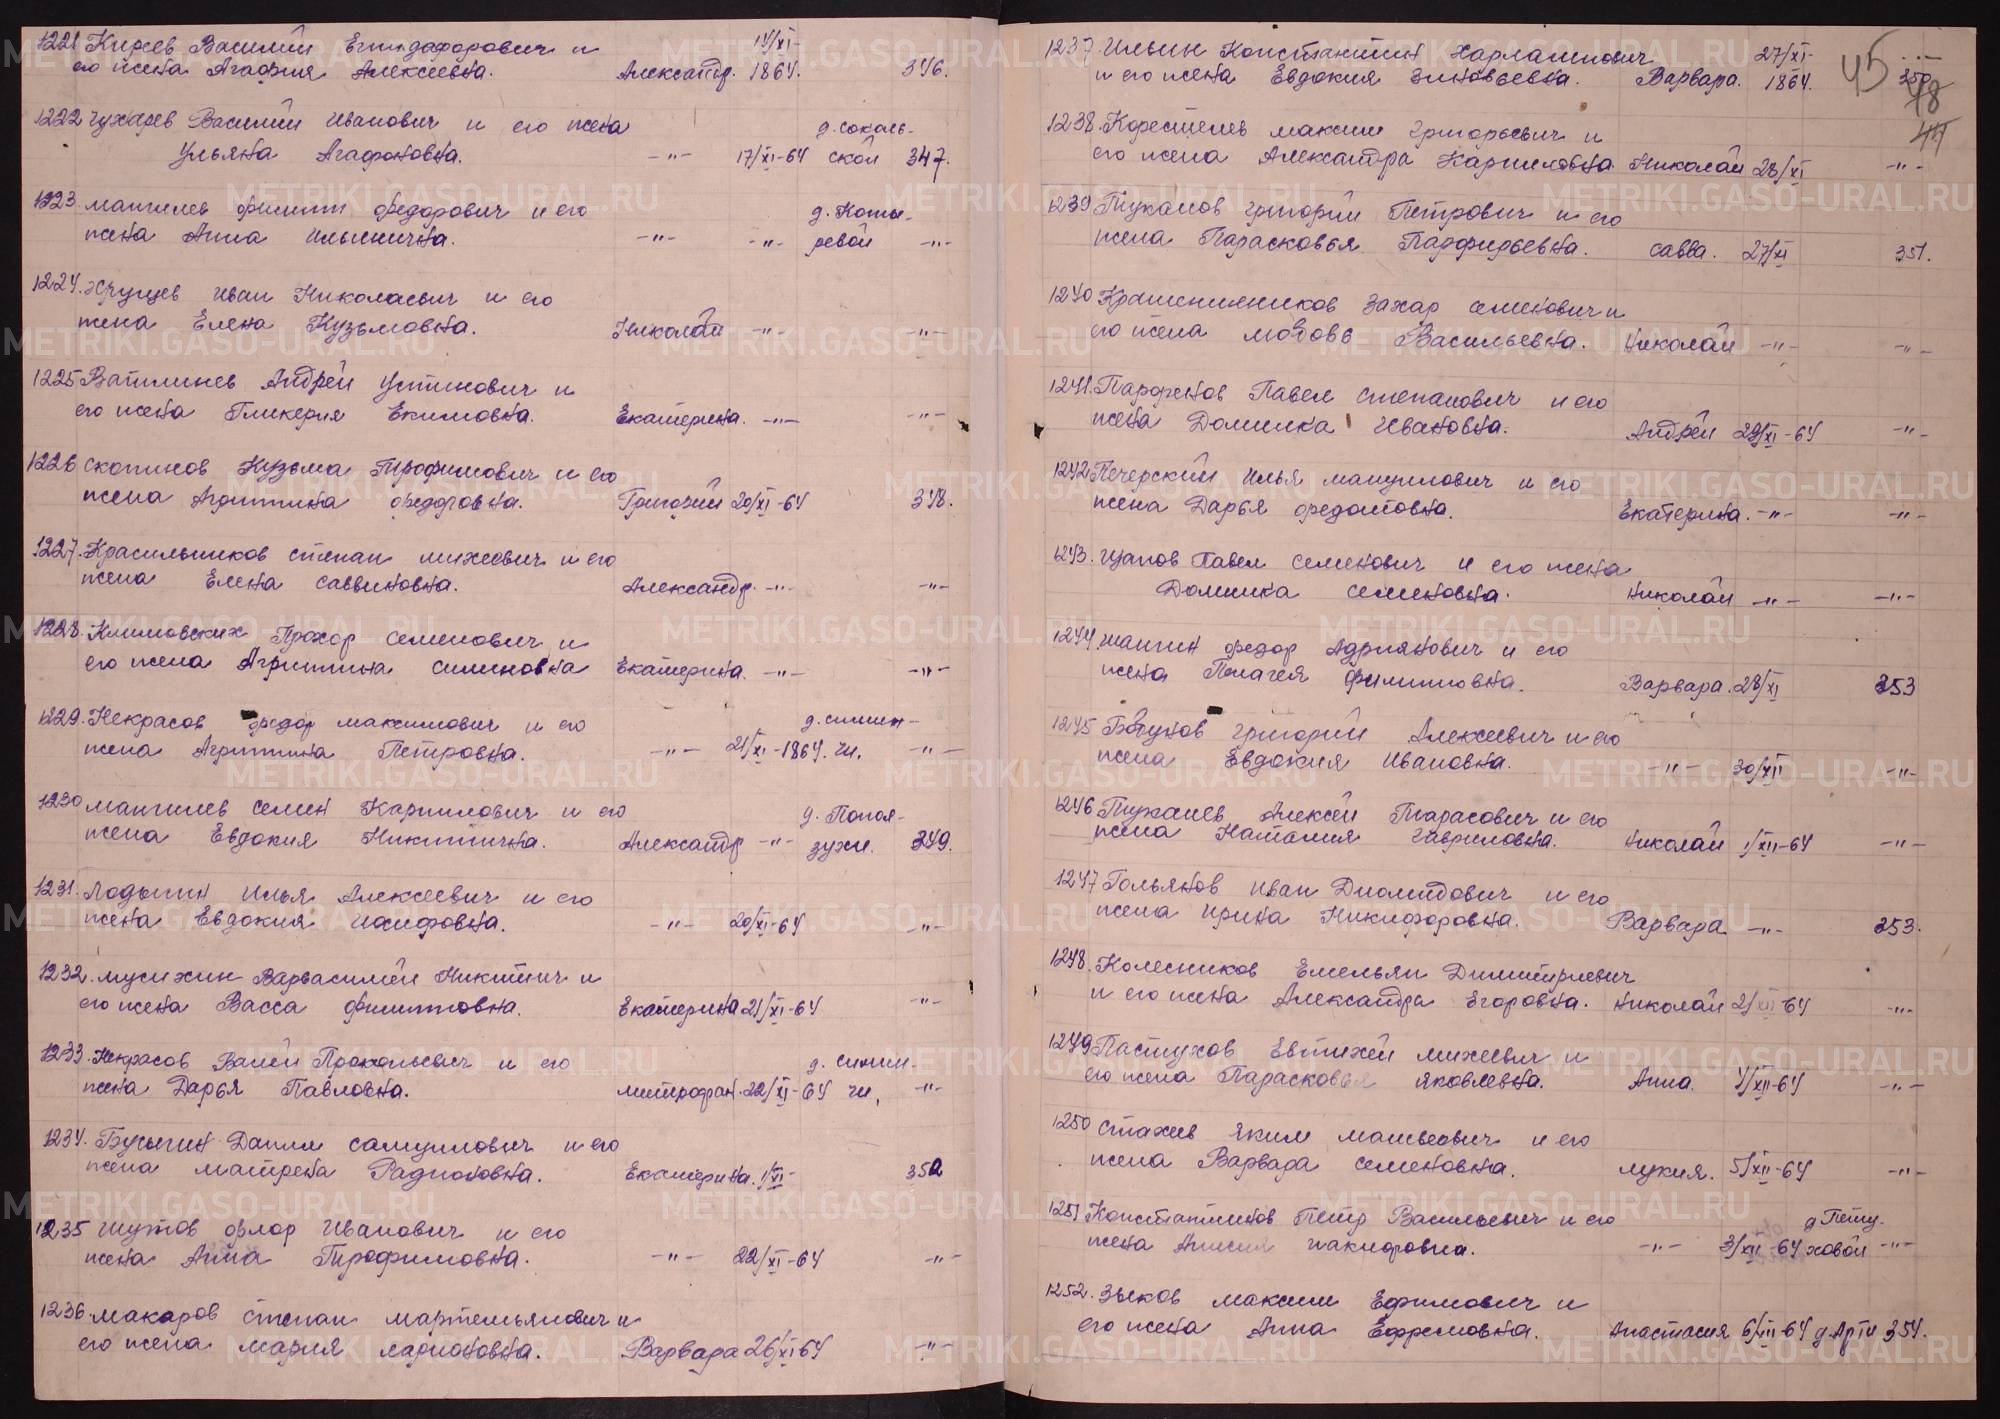 1221 Киреев Василий Епиндафорович и
его жена Агафия Алексеевна. Александр. 14/XI-1864. 346.
1222 Чухарев Василий Иванович и его жена д. Соколь-
Ульяна Агафоновна. -"- 17/XI-64 ской 347.
1223. Мангилев Филипп Федорович и его д. Коты-
жена Анна Ильинична. -"- -"- ревой -"-
1224. Хрущев Иван Николаевич и его
жена Елена Кузьмовна. Николай -"- -"-
1225 Ватлинев Андрей Устинович и
его жена Гликерия Екимовна. Екатерина. -"- -"-
1226 Скопинов Кузьма Трофимович и его
жена Агриппина Федоровна. Григорий 20/XI-64 348.
1227. Красильников Степан Михеевич и его
жена Елена Саввиновна. Александр. -"- -"-
1228. Климовских Прохор Семенович и
его жена Агриппина Симиновна Екатерина. -"- -"-
1229. Некрасов Федор Максимович и его д. Синин-
жена Агриппина Петровна. -"- 21/XI-1864. чи, -"-
1230 Мангилев Семен Карпилович и его д. Попол-
жена Евдокия Никитична. Александр -"- зухи. 349.
1231. Лодыгин Илья Алексеевич и его
жена Евдокия Иосифовна. -"- 20/XI-64 -"-
1232. Мусихин Варвасилей Никитич и
его жена Васса Филипповна. Екатерина 21/XI-64 -"-
1233. Некрасов Прокопьевич и его д. Синин-
жена Дарья Павловна. Митрофан. 22/XI-64 чи, -"-
1234. Бусыгин Данил Самуилович и его
жена Матрена Радионовна. Екатерина. 1/XI 352
1235 Шутов Флор Иванович и его
жена Анна Трофимовна. -"- 22/XI-64 -"-
1236. Макаров Степан Мартемьянович и
его жена Мария Ларионовна. Варвара 26/XI 64 -"-
45
48
44
1237. Ильин Константин Харлампович 27/XI-
и его жена Евдокия Зиновьевна. Варвара. 1864. 350
1238. Корестелев Максим Григорьевич и
его жена Александра Карпиловна Николай 28/XI -"-
1239 Тукачов Григорий Петрович и его
жена Парасковья Парфирьевна. Савва. 27/XI 351.
1240 Крашенинников Захар Семенович и
его жена Любовь Васильевна. Николай -"- -"-
1241. Парфенов Павел Степанович и его
жена Домника Ивановна. Андрей 29/XI-64 -"-
1242 Печерский Илья Мануилович и его
жена Дарья Федотовна. Екатерина. -"- -"-
1243. Щапов Павел Семенович и его жена
Домника Семеновна. Николай -"- -"-
1244. Шангин Федор Адриянович и его
жена Пелагея Филипповна. Варвара. 28/XI 353
1245 Бобунов Григорий Алексеевич и его
жена Евдокия Ивановна. -"- 30/XII -"-
1246 Тукачев Алексей Тарасович и его
жена Наталия Гавриловна. Николай 1/XII-64 -"-
1247 Гольянов Иван Диомидович и его
жена Ирина Никифоровна. Варвара -"- 353.
1248. Колесников Емельян Димитриевич
и его жена Александра Егоровна. Николай 2/XII 64 -"-
1249 Пастухов Евтихей Михеевич и
его жена Парасковья Яковлевна. Анна. 4/XII-64 -"-
1250 Стахев Яким Матвеович и его
жена Варвара Семеновна. Лукия. 5/XII-64 -"-
1251 Константинов Петр Васильевич и его д. Пету-
жена Анисия Никифровна. -"- 3/XII-64 ховой -"-
1252. Зыков Максим Ефимович и
его жена Анна Ефремовна. Анастасия 6/XII-64 д. Арти 354.
METRIKI.GASO-URAL.RU